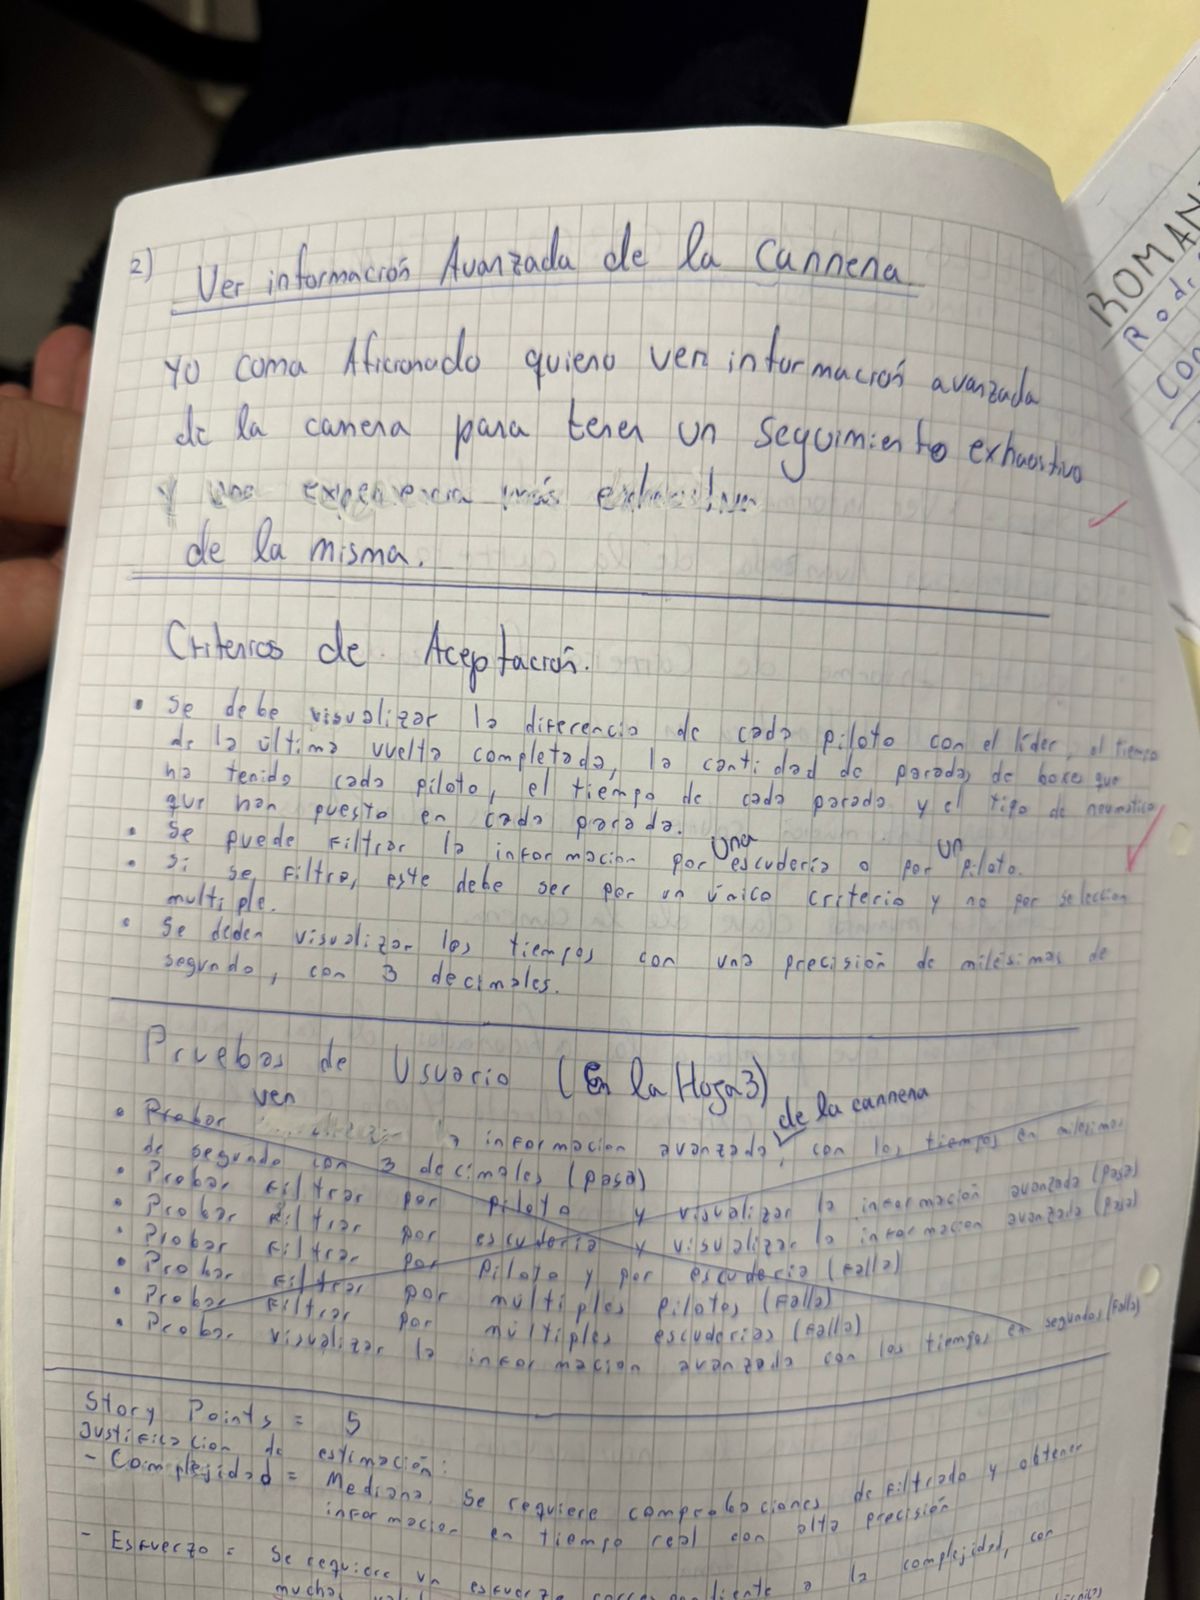 2) Ver información Avanzada de la Carrera
Yo como Aficionado quiero ver información avanzada
de la carrera para tener un seguimiento exhaustivo
y una experiencia más exhaustiva
de la misma.
Criterios de Aceptación.
• Se debe visualizar la diferencia de cada piloto con el líder, el tiempo
de la última vuelta completada, la cantidad de paradas de boxes que
ha tenido cada piloto, el tiempo de cada parada y el tipo de neumático
que han puesto en cada parada.
• Se puede filtrar la informacion por una escudería o por un piloto.
• Si se filtra, este debe ser por un único criterio y no por seleccion
multiple.
• Se deden visualizar los tiempos con una precisión de milésimas de
segundo, con 3 decimales.
Pruebas de Usuario (En la Hoja 3)
• Probar ver la informacion avanzada de la carrera, con los tiempos en milesimas
de segundo con 3 decimales (pasa)
• Probar filtrar por piloto y visualizar la informacion avanzada (pasa)
• Probar filtrar por escuderia y visualizar la informacion avanzada (pasa)
• Probar filtrar por piloto y por escuderia (falla)
• Probar filtrar por múltiples pilotos (falla)
• Probar filtrar por múltiples escuderias (falla)
• Probar visualizar la informacion avanzada con los tiempos en segundos (falla)
Story Points = 5
Justificacion de estimación:
- Complejidad = Mediana. Se requiere comprobaciones de filtrado y obtener
informacion en tiempo real con alta precisión
- Esfuerzo = Se requiere un esfuerzo correspondiente a la complejidad, con
muchas
ROMAN
Rodr